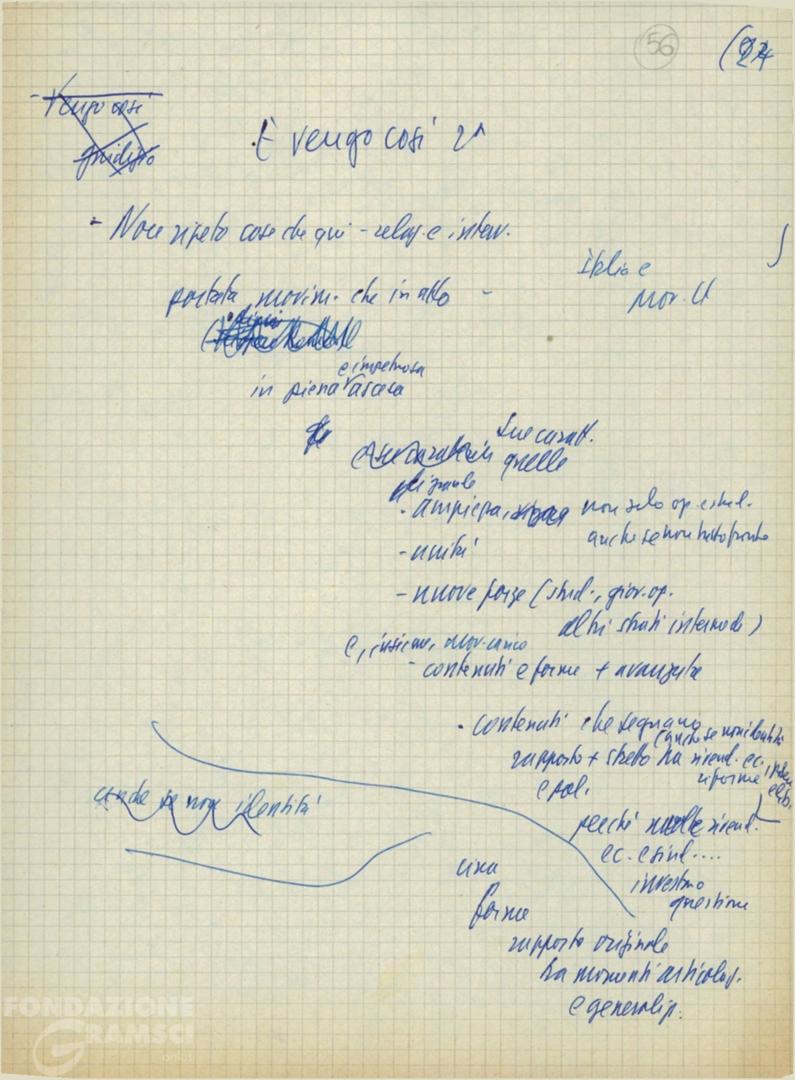 56
(24
- Vengo così
giudizio
È vengo così 2^
- Non ripeto cose che qui - relaz. e interv.
Italia e
Mov. U
portata movim. che in atto -
e impetuosa
in piena ascesa
Sue caratt.
quelle
più grande
- ampiezza, non solo op. e stud.
anche se non tutto fronte
- unità
- nuove forze (stud., giov. op.
altri strati intermedi)
e, insieme,
- contenuti e forme + avanzate
- contenuti che segnano
(anche se non identità
rapporto + stretto tra rivend. ec.
riforme
e pol.
anche se non identità
perché molte rivend.
ec. e sind....
investono
questione
una
forme
rapporto originale
tra momenti articolaz.
e generaliz.
FONDAZIONE
GRAMSCI
onlus